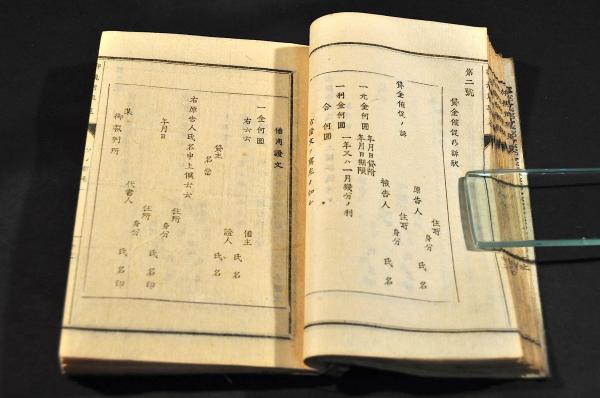 第二號
貸金催促ノ訴狀
住所 身分
原告人 氏名
住所 身分
被告人 氏名
貸金催促ノ訴
一元金何圓 年月日貸附 年月日期限
一利金何圓 一年又ハ一月幾分ノ利
合何圓
借用證文
一金何圓
右云云
借主 氏名
證人 氏名
貸主
名當
右原告人氏名申上候云云
年月日
住所 身分 氏名印
住所 身分
代書人 氏名印
某
御裁判所